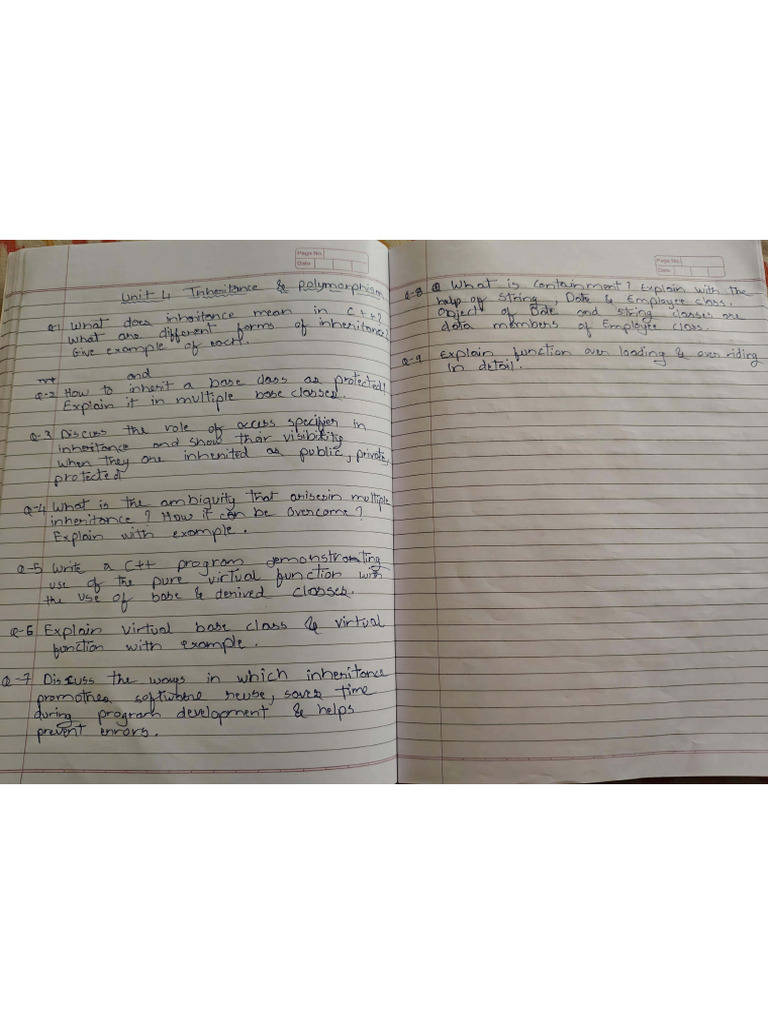 Page No.
Date
Unit 4 Inheritance & Polymorphism
Q-1 What does inheritance mean in C++?
What are different forms of inheritance?
Give example of each.
and
Q-2 How to inherit a base class as protected?
Explain it in multiple base classes.
Q-3 Discuss the role of access specifier in
inheritance and show their visibility
when they are inherited as public, private,
protected
Q-4 What is the ambiquity that arises in multiple
inheritance? How it can be overcome?
Explain with example.
Q-5 Write a C++ program demonstrating
use of the pure virtual function with
the use of base & derived classes.
Q-6 Explain virtual base class & virtual
function with example.
Q-7 Discuss the ways in which inheritance
promothes software reuse, saves time
during program development & helps
prevent errors.
Page No.
Date
Q-8 What is containment? Explain with the
help of String, Date & Employee class.
Object of Date and string classes are
data members of Employee class.
Q-9 Explain function over loading & over riding
in detail.